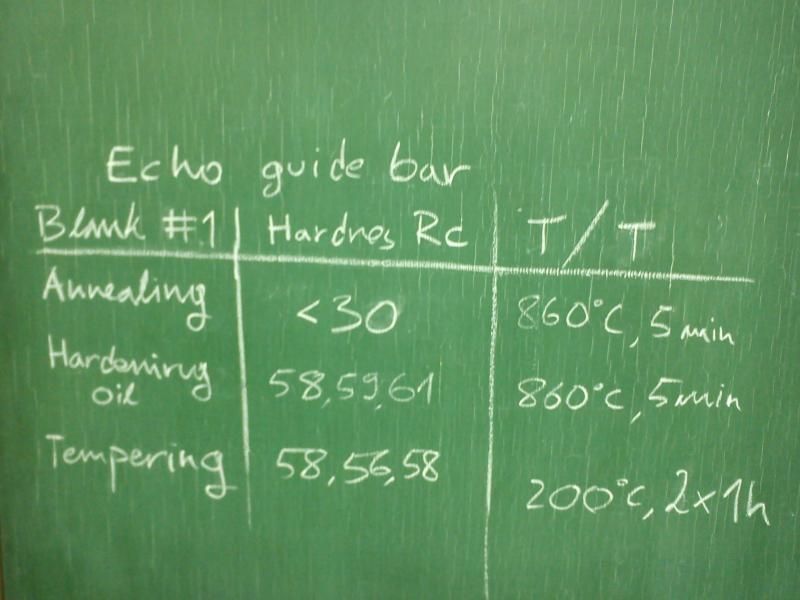 Echo guide bar
Blank #1 Hardnes Rc T/T
Annealing <30 860°C, 5 min
Hardening 58,59,61 860°C, 5 min
oil
Tempering 58,56,58 200°C, 2x1h